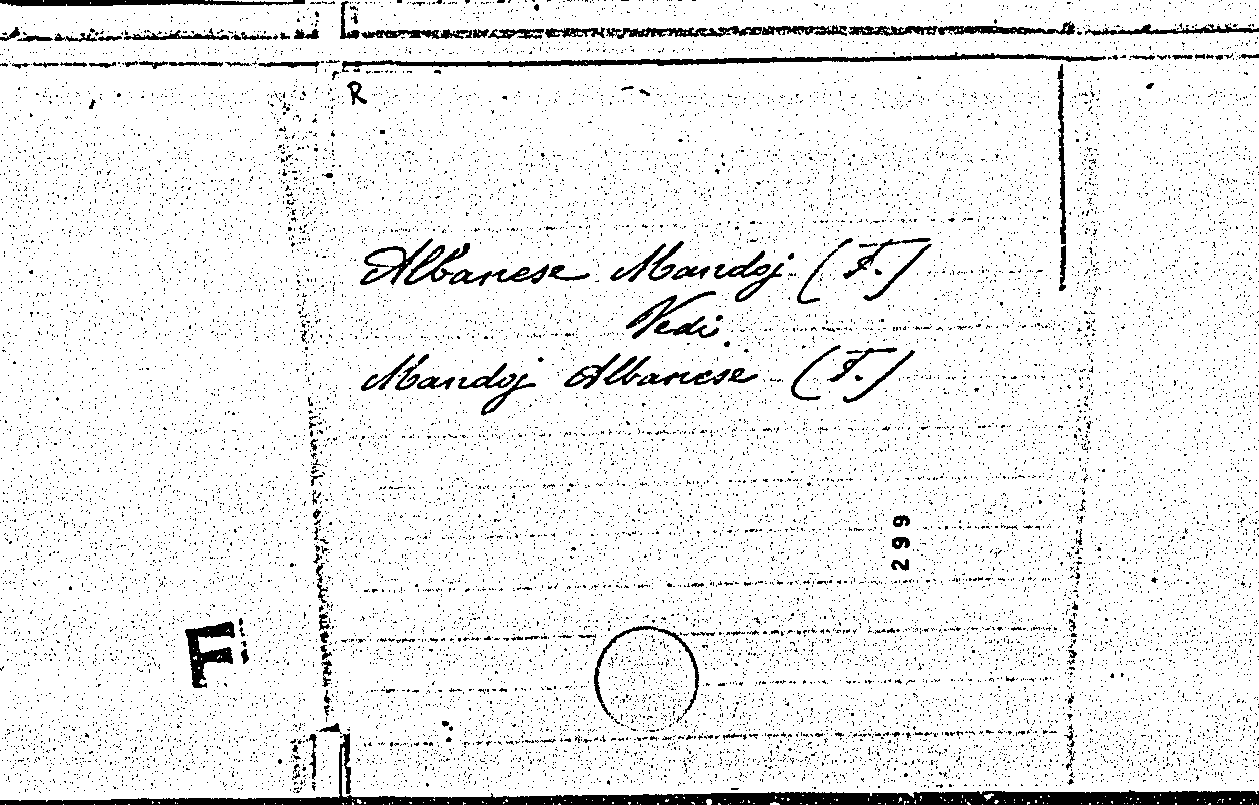 R
Albanese Mandoj (F.)
Vedi
Mandoj Albanese (F.)
299
F